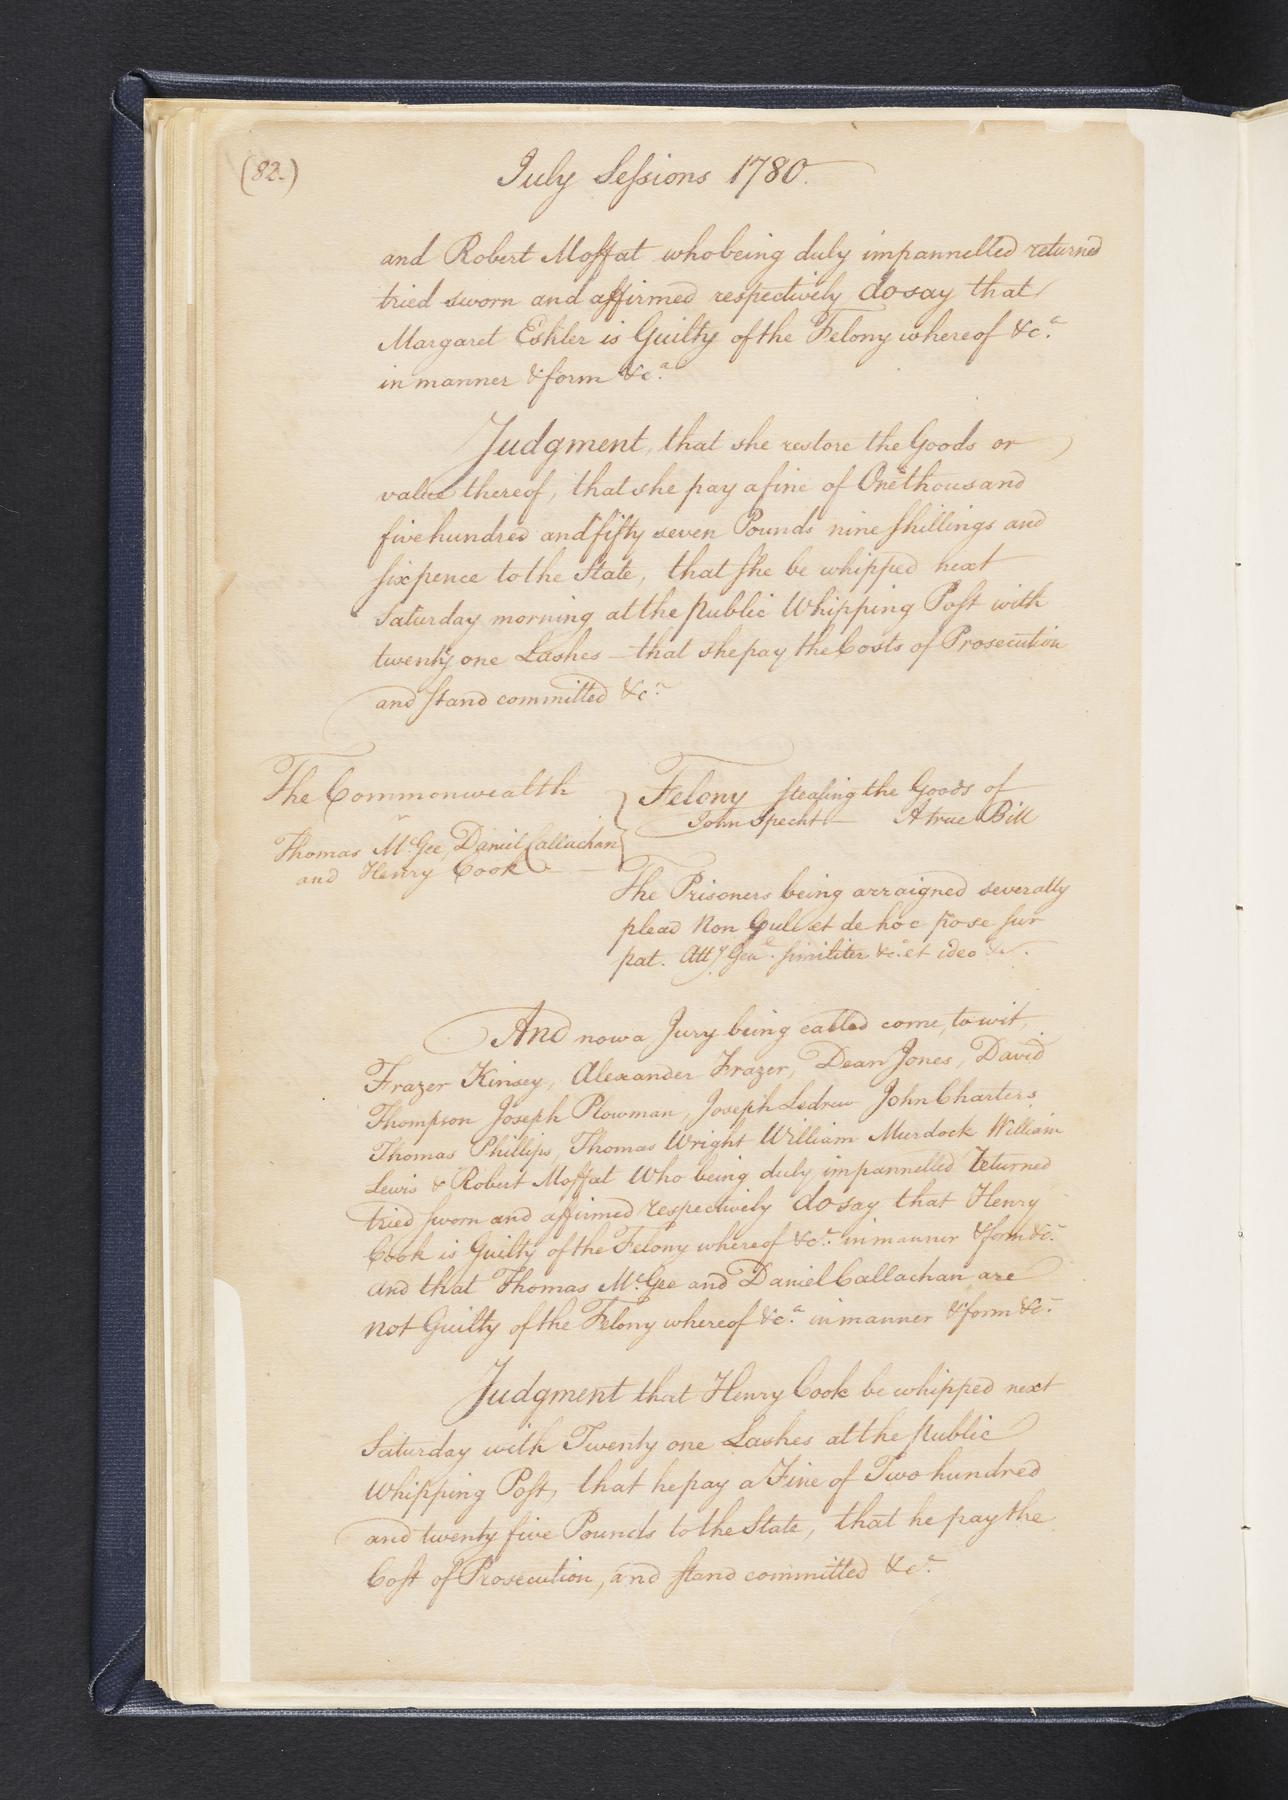 (82.)
July Sessions 1780.
and Robert Moffat who being duly impannelled returned
tried sworn and affirmed respectively do say that
Margaret Eshler is Guilty of the Felony whereof &c.a
in manner & form &c.a
Judgment, that she restore the Goods or
value thereof, that she pay a fine of One thousand
five hundred and fifty seven Pounds nine shillings and
six pence to the State, that she be whipped next
Saturday morning at the public Whipping Post with
twenty one Lashes - that she pay the Costs of Prosecution
and stand committed &c.a
The Commonwealth
v
Thomas McGee, Daniel Callachan
and Henry Cook
Felony stealing the Goods of
John Specht - A true Bill
The Prisoners being arraigned severally
plead Non Cul et de hoc pose sur
pat. Atty Genl. similiter &c. et ideo &c.
And now a Jury being called come, to wit,
Frazer Kinsey, Alexander Frazer, Dean Jones, David
Thompson Joseph Plowman, Joseph Ledrew John Charters
Thomas Phillips, Thomas Wright William Murdock William
Lewis & Robert Moffat Who being duly impannelled returned
tried sworn and affirmed respectively do say that Henry
Cook is Guilty of the Felony whereof &c.a in manner & form &c.
and that Thomas McGee and Daniel Callachan are
not Guilty of the Felony whereof &c.a in manner & form &c.
Judgment that Henry Cook be whipped next
Saturday with Twenty one Lashes at the public
Whipping Post, that he pay a Fine of Two hundred
and twenty five Pounds to the State, that he pay the
Cost of Prosecution, and stand committed &c.a